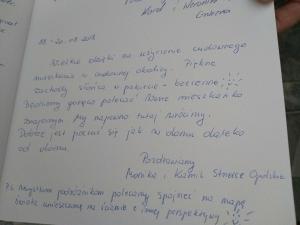 Karol i Weronika
18-20.08.2018
Wielkie dzięki za użyczenie cudownego
mieszkania w cudownej okolicy. Piękne
zachody słońca w pakiecie - bezcenne
Będziemy gorąco polecać Wasze mieszkanko
znajomym. My na pewno tutaj wrócimy.
Dobrze jest poczuć się jak w domu daleko
od domu.
Pozdrawiamy
Monika i Kamil Strzelce Opolskie
Ps. Wszystkim podróżnikom polecamy spojrzeć na mapę
świata umieszczoną na ścianie z innej perspektywy